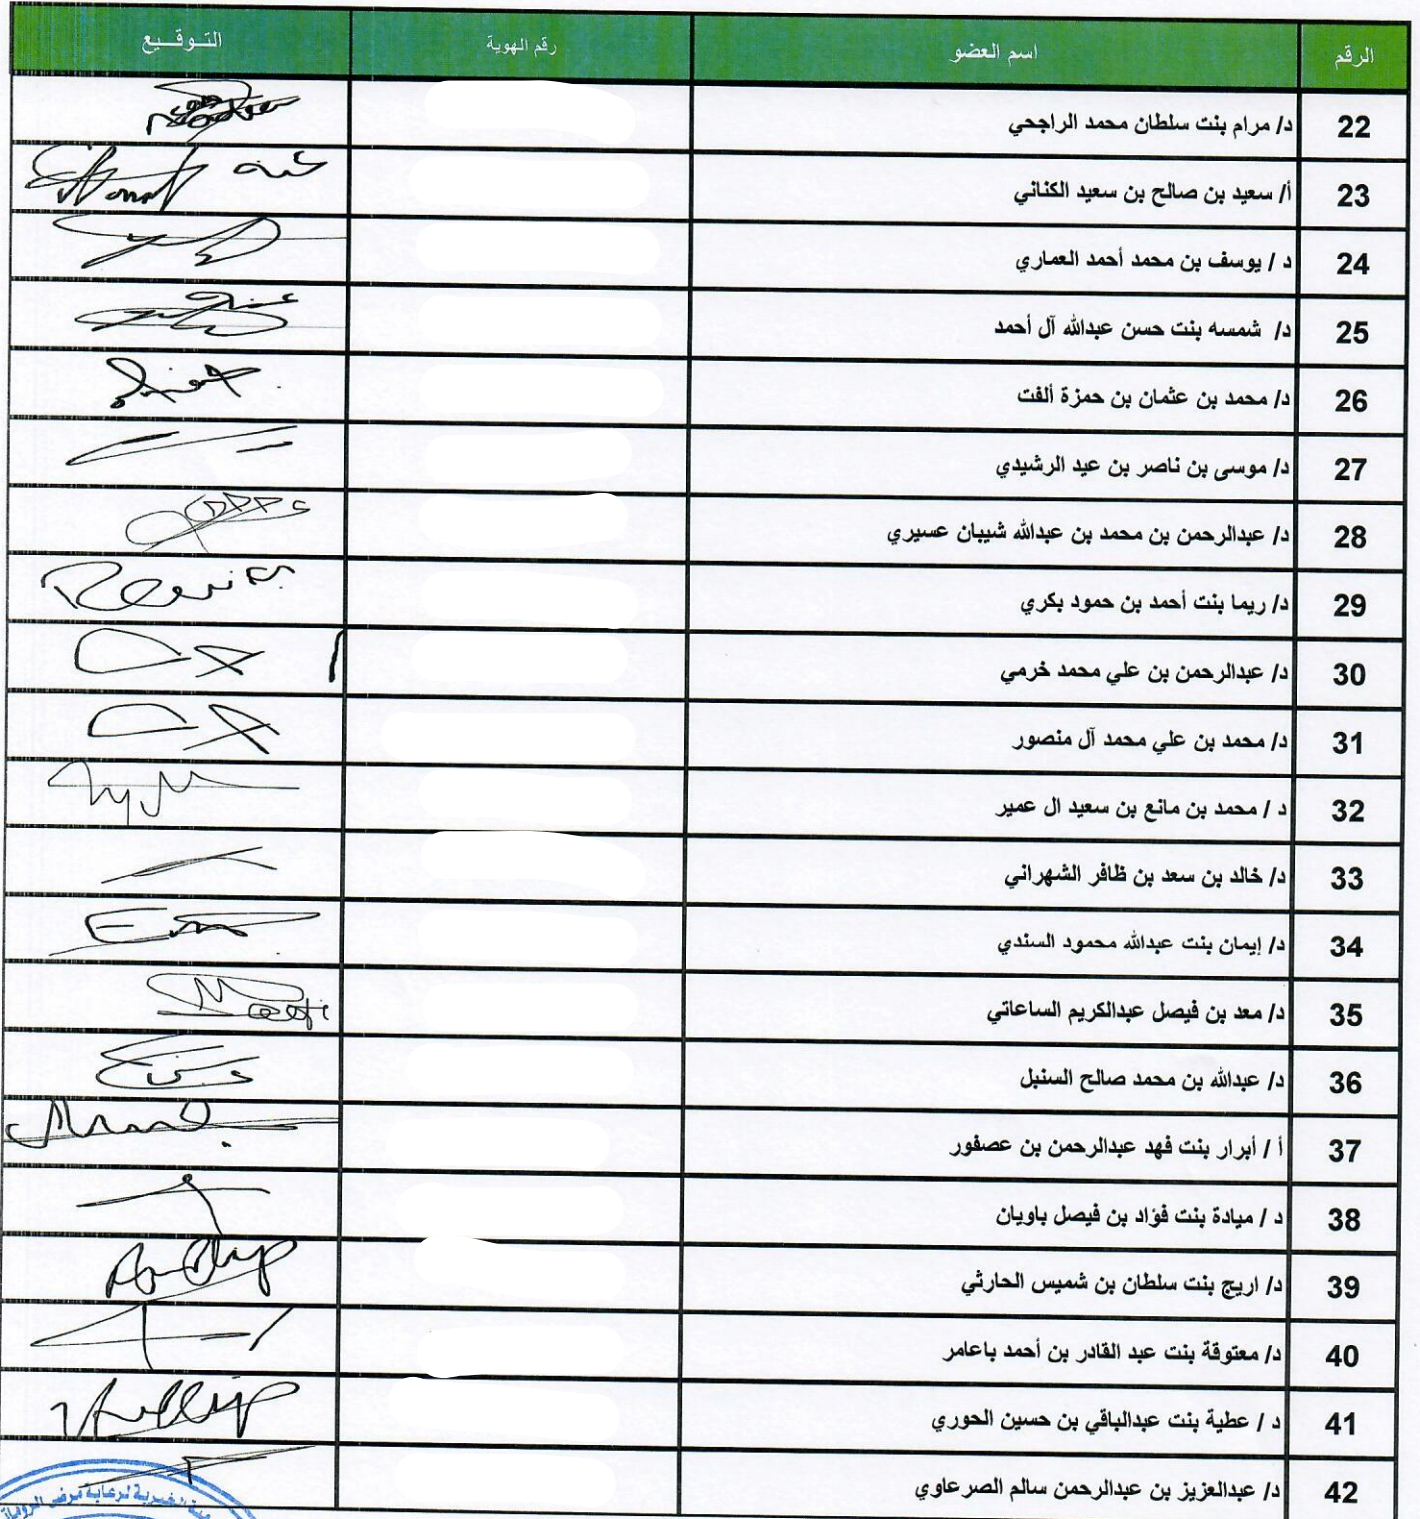 الرقم اسم العضو رقم الهوية التـوقـيع
22 د/ مرام بنت سلطان محمد الراجحي
23 أ/ سعيد بن صالح بن سعيد الكناني
24 د / يوسف بن محمد أحمد العماري
25 د/ شمسه بنت حسن عبدالله آل أحمد
26 د/ محمد بن عثمان بن حمزة ألفت
27 د/ موسى بن ناصر بن عيد الرشيدي
28 د/ عبدالرحمن بن محمد بن عبدالله شيبان عسيري
29 د/ ريما بنت أحمد بن حمود بكري
30 د/ عبدالرحمن بن علي محمد خرمي
31 د/ محمد بن علي محمد آل منصور
32 د / محمد بن مانع بن سعيد ال عمير
33 د/ خالد بن سعد بن ظافر الشهراني
34 د/ إيمان بنت عبدالله محمود السندي
35 د/ معد بن فيصل عبدالكريم الساعاتي
36 د/ عبدالله بن محمد صالح السنبل
37 أ / أبرار بنت فهد عبدالرحمن بن عصفور
38 د / ميادة بنت فؤاد بن فيصل باويان
39 د/ اريج بنت سلطان بن شميس الحارثي
40 د/ معتوقة بنت عبد القادر بن أحمد باعامر
41 د / عطية بنت عبدالباقي بن حسين الحوري
42 د/ عبدالعزيز بن عبدالرحمن سالم الصرعاوي
الخيرية لرعاية مرضى